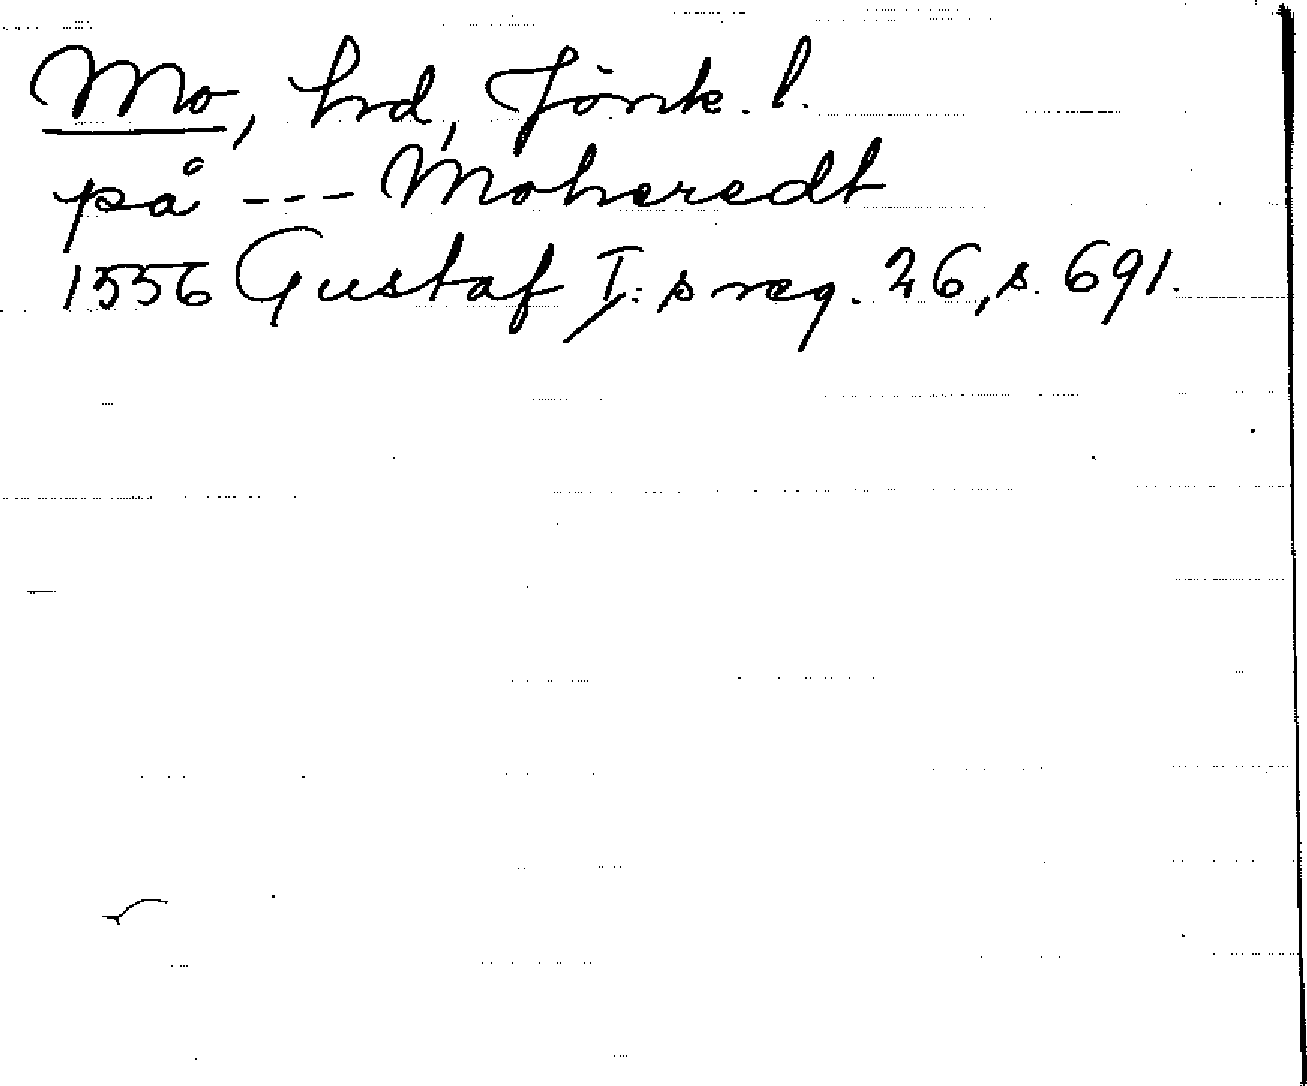 Mo, hrd, Jönk. l.
på --- Moheredt
1556 Gustaf I:s reg. 26, s. 691.